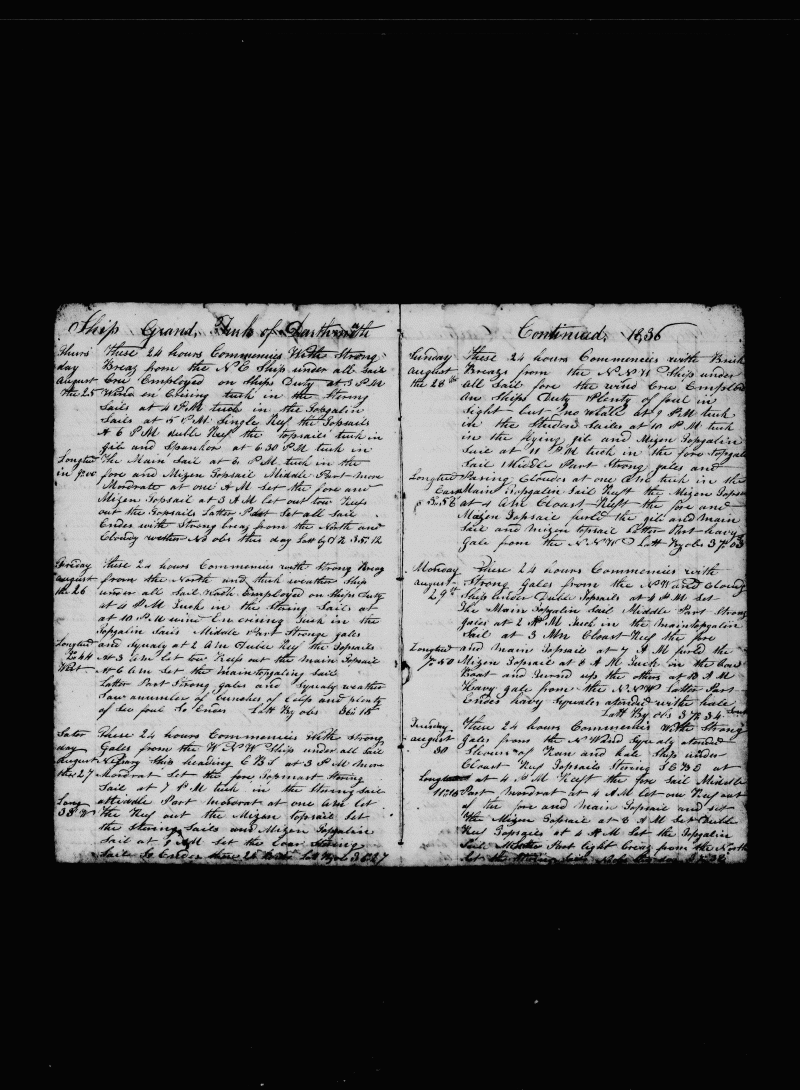 Ship Grand Turk of Dartmouth
Thurs these 24 hours Commencies With Strong
day Breaz from the N E Ship under all Sail
August Crew Employed on Ships Duty at 3 P M
the 25 Wind in Crising tuck in the String
Sails at 4 P M tuck in the Topgalin
Sails at 5 P M Single Reef the Topsails
A 6 P M duble Reef the topsails tuck in
gib and Spanker at 6 30 P M tuck in
Longtud The Main Sail at 6 P M tuck in the
in fore and Mizen Topsail Middle Part more
Mordrate at one A M Set the fore and
Mizen Topsail at 3 A M let out tow Reefs
out the Topsails Latter Part Set all Sail
Endes with Strong breaz from the North and
Cloudy wether No obs this day Latt by 35:12
Friday these 24 hours Commencies with Strong Breaz
August from the North and thick weather Ship
the 26 under all Sail Employed on Ships Duty
at 4 P M Tuck in the String Sails at
at 10 P M wind Encrising Tuck in the
Topgalin Sails Middle Part Stronge gales
Longtud and Squaly at 2 A m Duble Reef the Topsails
at 3 A m let tow Reefs out the Main Topsail
West at 6 A m Set the maintopgaling Sail
Latter Part Strong gales and Squaly weather
Saw anumber of bunches of and plenty
of Sea foul So Endes Latt By obs 36:18
Sater these 24 hours Commencies With Strong
day Gales from the W N W Ship under all Sail
August Ship heading E B S at 3 P M more
the 27 Mordrat Set the fore Topmast String
Sail at 7 P M tuck in the String Sail
Long Middle Part mordrat at one A M let
the Reef out the Mizen topsail Set
the String Sails and Mizen Topgalin
Sail at A M Set the String
Sails So Endes these 24 hours Latt By ob 36:27
Continued, 1836
Sunday these 24 hours Commencies with Brisk
August Breaz from the N N W Ship under
the 28th All Sail fore the wind Crew Employed
on Ships Duty Plenty of foul in
Sight but no whale at 9 P M tuck
in the Studen Sailes at 10 P M tuck
in the flying gib and Mizen Topgalin
Sail at 11 P M tuck in the fore topgaln
Sail Middle Part Strong gales and
Longtud Clouds at one A m tuck in the
Main Topgalin Sail Reeft the Mizen Topsail
at 4 A m Cloast Reeft the fore and
Mizen Topsail furld the gib and main
Sail and Mizen topsail Latter Part havy
Gale from the N N W Latt By obs 37:03
Monday these 24 hours Commencies with
August Strong Gales from the N W and Cloudy
29th Ship under Duble Topsails at 4 P M Set
The Main Topgalin Sail Middle Part Strong
gales at 2 A M Tuck in the main Topgalin
Sail at 3 A M Cloast Reef the fore
Longtud and Main Topsail at 7 A M furld the
Mizen Topsail at 8 A M Tuck in the
Boat and Turned up the others at 10 A M
Heavy gale from the N N W Latter Part
Endes havy Squales atended with hale
Latt By obs 37:34
Tuesday these 24 hours Commencies With Strong
August gales from the N W and Squaly atended
30 Showers of Rain and hale Ship under
Cloast Reef Topsails Stering S E B E at
Long at 4 P M Reeft the fore Sail Middle
Part Mordrat at 4 A M let one Reef out
of the fore and Main Topsail and set
the Mizen Topsail at 8 A M Set Duble
Reef Topsails at 4 A M Set the Topgalin
Sail Latter Part light breaz from the North